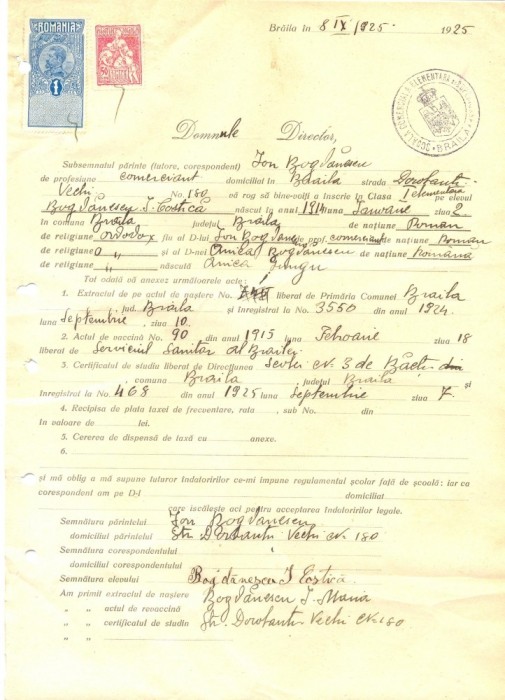 ROMANIA
1
Brăila în 8 IX 1925 1925
ȘCOALA COMERCIALĂ ELEMENTARĂ
BRAILA
Domnule Director,
Subsemnatul părinte (tutore, corespondent) Ion Bogdănescu
de profesiune comerciant domiciliat în Brăila strada Dorobanți
Vechi No. 180 vă rog să bine-voiți a înscrie în Clasa I elementara pe elevul
Bogdănescu I. Costică născut în anul Ianuarie ziua 2.
în comuna Braila județul Braila de națiune Român
de religiune ortodox fiu al D-lui Ion Bogdănescu prof. comerciant de națiune Român
de religiune o " și al D-nei Anica Bogdănescu de națiune Română
de religiune " născulă Anica
Tot odată vă anexez armăioarele acte:
1. Extractul de pe actul de naștere No. liberat de Primăria Comunei Braila
jud. Braila și înregistrat la No. 3550 din anul 1924
luna Septembrie, ziua 10.
2. Actul de vaccină No. 90 din anul 1915 luna ziua 18
liberat de Serviciul Sanitar al Brailei
3. Certificatul de studiu liberat de Direcțiunea No. 3 de Băeți
, comuna Braila, județul Braila și
înregistrat la No. 468 din anul 1925 luna Septembrie ziua 7.
4. Recipisa de plata taxei de frecuentare, rata , sub No. din
în valoare de lei.
5. Cererea de dispensă de taxă cu anexe.
6.
și mă oblig a mă supune tuturor îndatoririlor ce-mi impune regulamentul școlar față de școală: iar ca
corespondent am pe D-l domiciliat
care iscălește aci pentru acceptarea îndatoririlor legale.
Semnătura părintelui Ion Bogdănescu
domiciliul părintelui Str. Dorobanti Vechi No. 180
Semnătura corespondentului
domiciliul corespondentului
Semnătura elevului Bogdănescu I Costică
Am primit extractul de naștere Bogdănescu I. Maria
" " actul de revaccină
" " certificatul de studiu Str. Dorobanti Vechi No. 180
" "